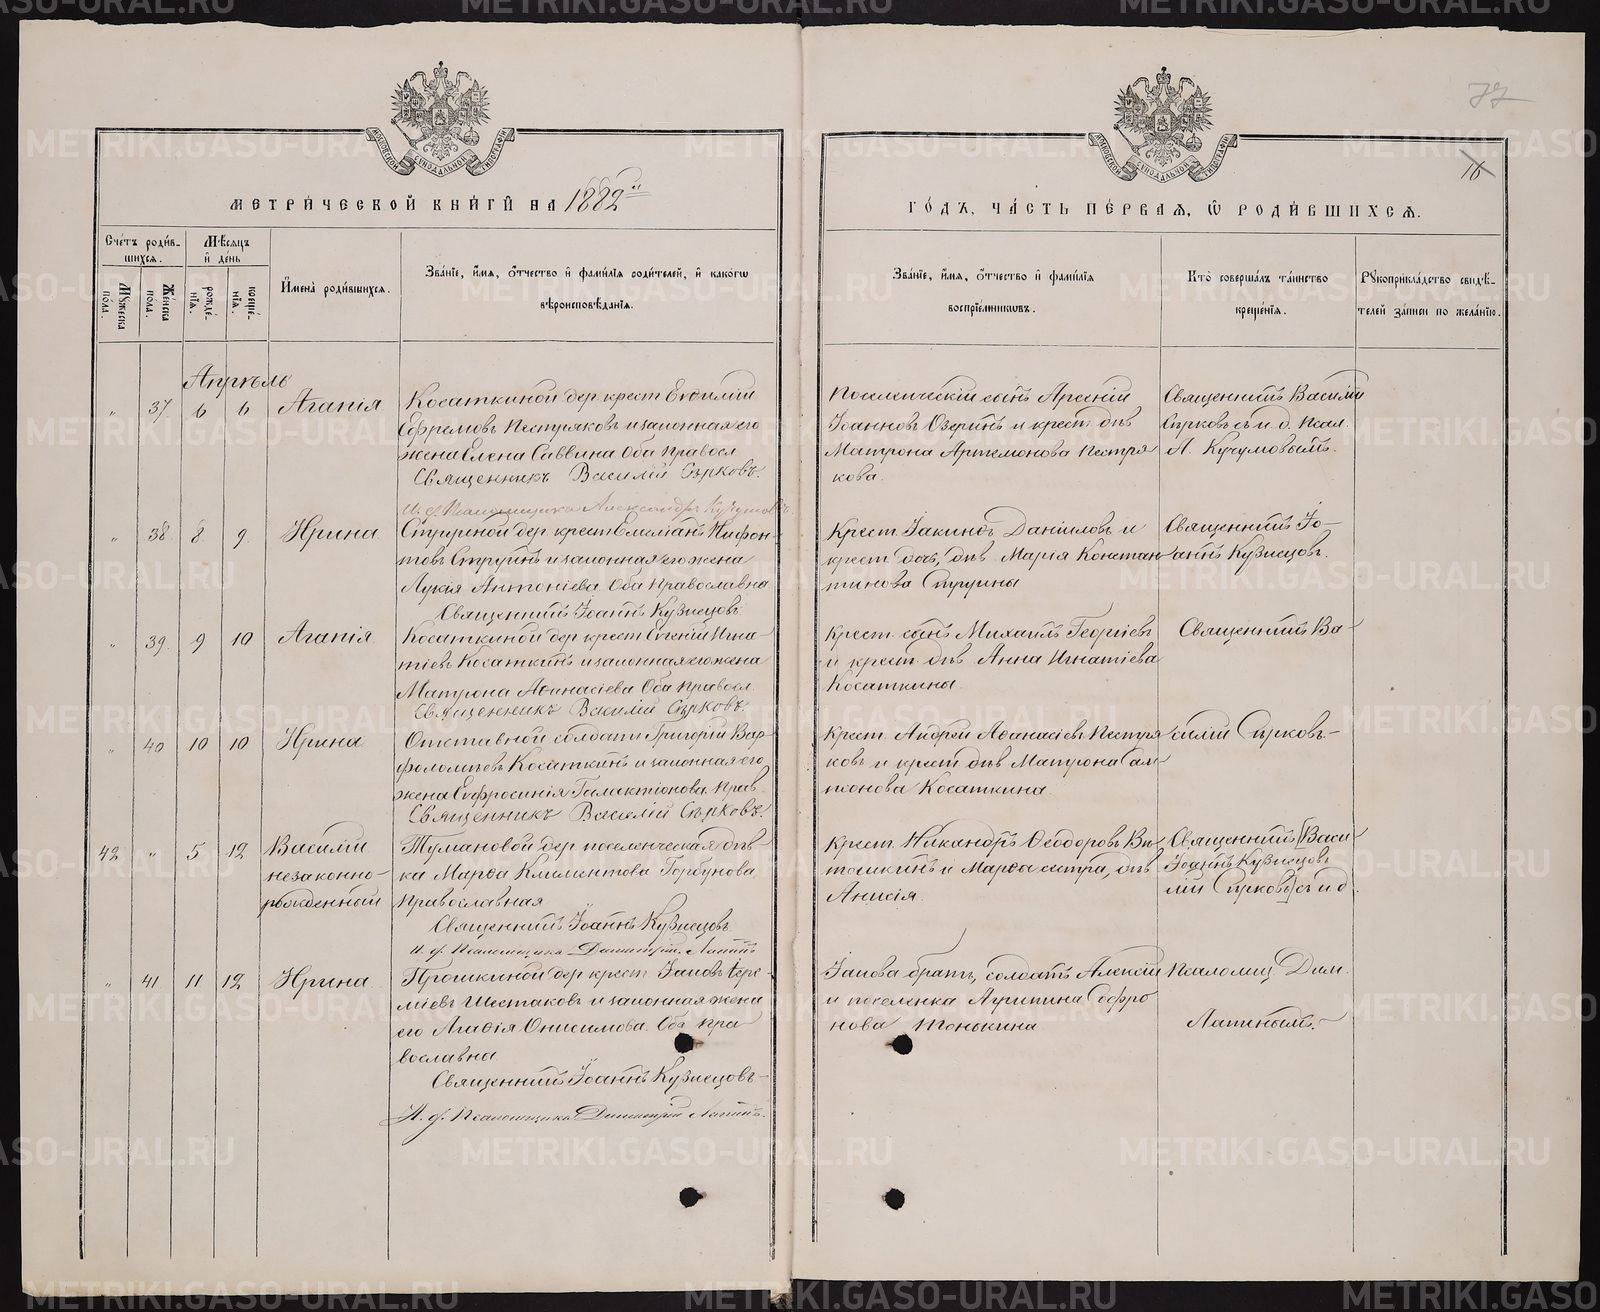 77
16
МЕТРИ́ЧЕСКОЙ КНИ́ГИ НА 1882й
ГО́ДЪ, ЧА́СТЬ ПЕ́РВАЯ, Ѽ РОДИ́ВШИХСЯ.
Сче́тъ роди́вшихся.
Му́жеска пола.
Же́нска пола.
Мѣ́сяцъ и день
рожде́нїя.
креще́нїя.
И҆мена̀ роди́вшихся.
Зва́нїе, и҆́мя, ѻ҆́тчество и҆ фами́лїя роди́телей, и҆ како́гѡ
вѣроисповѣ́данїя.
Зва́нїе, и҆́мя, ѻ҆́тчество и҆ фами́лїя
воспрїе́мниковъ.
Кто̀ соверша́лъ та́инство
креще́нїя.
Рꙋкоприкла́дство свидѣ́-
телей за́писи по жела́нїю.
Апрѣль
" 37 6 6 Агапія
Косаткиной дер. крест. Евѳимій
Ефремовъ Пестряковъ и законная его
жена Елена Саввина Оба правосл.
Священникъ Василій Сѣрковъ.
И. д. Псаломщика Александръ Кучумовъ
Поселенческій сынъ Арсеній
Іоанновъ Озеринъ и крест. дѣв.
Матрона Артемонова Пестря
кова.
Священникъ Василій
Сѣрковъ съ и. д. Псал.
А. Кучумовымъ.
" 38 8 9 Ирина
Стриной дер. крест. Нифон-
товъ и законная его жена
Лукія Антоніева. Оба Православна
Священникъ Іоаннъ Кузнецовъ
Крест. Іакинѳъ Даніиловъ и
крест. дочь, дѣв. Марія Констан
тинова
Священникъ Іо-
аннъ Кузнецовъ.
" 39 9 10 Агапія
Косаткиной дер. крест. Евгеній Игна-
тіевъ Косаткинъ и законная его жена
Матрона Аѳанасіева Оба правосл.
Священникъ Василій Сѣрковъ.
Крест. сынъ Михаилъ Георгіевъ
и крест. дѣв. Анна Игнатіева
Косаткины.
Священникъ Ва-
" 40 10 10 Ирина
Отставной солдатъ Григорій Вар-
фоломѣевъ Косаткинъ и законная его
жена Евфросинія Галактіонова. Прав.
Священникъ Василій Сѣрковъ.
Крест. Андрей Аѳанасіевъ Пестря
ковъ и крест. дѣв. Матрона Сам-
сонова Косаткина
силій Сѣрковъ-
42 " 5 12 Василій
незаконно-
рожденный
Тумановой дер. поселенческая дѣв-
ка Марѳа Климентова Горбунова
православная
Священникъ Іоаннъ Кузнецовъ
И. д. Псаломщика Димитрій Лапинъ
Крест. Никандръ Ѳеодоровъ
и Марѳа сестра, дѣв.
Анисія.
Священникъ [Васи-
Іоаннъ Кузнецовъ
лій Сѣрковъ] съ и д.
" 41 11 12 Ирина
Прошкиной дер. крест. Іаковъ Іере-
міевъ Шестаковъ и законная жена
его Агаѳія Онисимова. Оба пра
вославны
Священникъ Іоаннъ Кузнецовъ-
И. д. Псаломщика Димитрій Лапинъ.
Іакова братъ, солдатъ Алексій
и поселенка Агрипина Софро
нова
Псаломщ. Дим.
Лапинымъ.-
METRIKI.GASO-URAL.RU